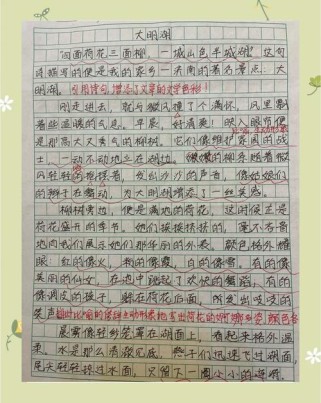 大明湖
"四面荷花三面柳，一城山色半城湖"这句
诗描写的便是我的家乡—济南的著名景点：大
明湖。引用诗句，增添了文章的文学色彩！
刚走进去，就与微风撞了个满怀，风里夹
着些温暖的气息。早晨，好清爽！映入眼帘便
是那高大又勇气的柳树。它们像维护家园的战
士，一动不动地立在湖边。嫩嫩的柳条随着微
风轻轻摇摆着，发出沙沙的声音，像姑娘们
的辫子在舞动，为大明湖增添了一丝美感。
柳树旁边，便是满池的荷花，这时候正是
荷花盛开的季节。她们挨挨挤挤的，毫不吝啬
地向我们展示她们那华丽的外表。颜色格外耀
眼：红的像火，粉的像霞，白的像雪，有的像
美丽的仙女，在池中跳起了欢快的舞蹈，有的
像调皮的孩子，躲在荷花后面，时不时发出咬咬的
笑声
晨雾像轻纱笼罩在湖面上，看起来格外温
柔。水是那么清澈见底，燕子们迅速飞过湖面，
尾尖轻轻掠过水面，只留下一圈小小的涟漪。